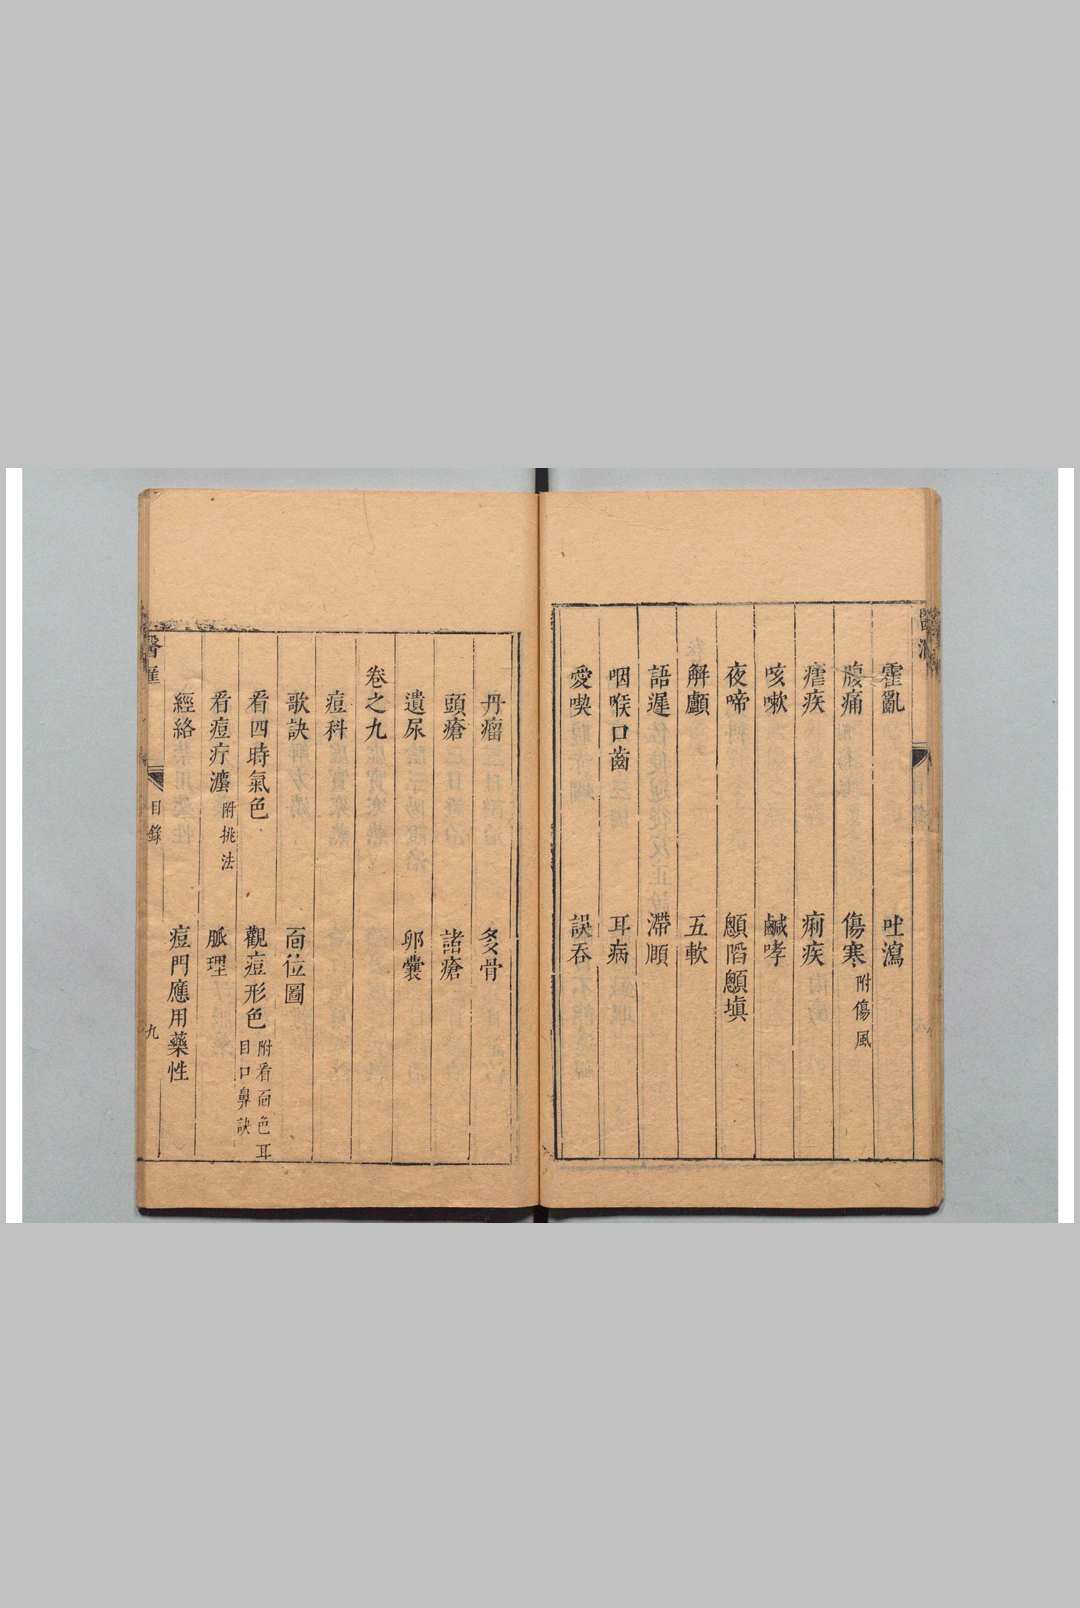 霍亂 吐瀉
腹痛 傷寒 附傷風
瘧疾 痢疾
咳嗽 鹹哮
夜啼 顋䐄顋塡
解顱 五軟
語遲 滯頤
咽喉口齒 耳病
愛喫 誤吞
丹瘤 多骨
頭瘡 諸瘡
遺尿 卵囊
卷之九
痘科
歌訣 面位圖
看四時氣色 觀痘形色 附看面色耳目口鼻訣
看痘疔瀍 附挑法 脈理
經絡 痘門應用藥性
目錄 九